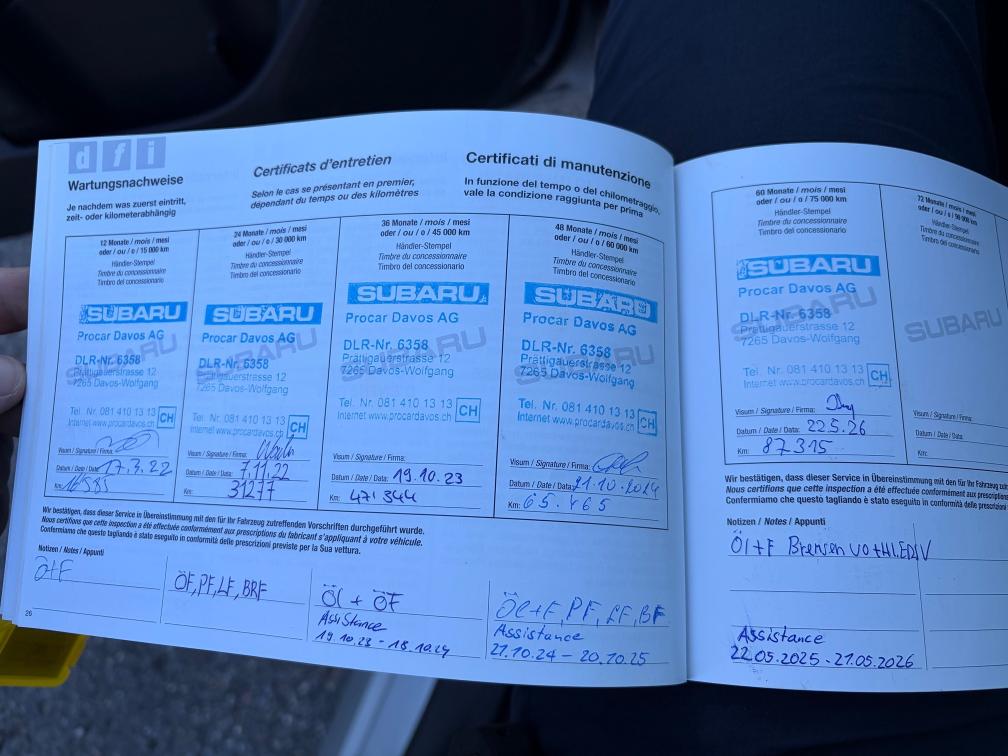 dfi
Wartungsnachweise
Je nachdem was zuerst eintritt,
zeit- oder kilometerabhängig
Certificats d'entretien
Selon le cas se présentant en premier,
dépendant du temps ou des kilomètres
Certificati di manutenzione
In funzione del tempo o del chilometraggio,
vale la condizione raggiunta per prima
12 Monate / mois / mesi
oder / ou / o / 15 000 km
Händler-Stempel
Timbre du concessionnaire
Timbro del concessionario
SUBARU
Procar Davos AG
SUBARU
DLR-Nr. 6358
Prättigauerstrasse 12
7265 Davos-Wolfgang
Tel. Nr. 081 410 13 13
Internet www.procardavos.ch
CH
Visum / Signature / Firma:
Datum / Date / Data: 17.3.22
Km: 16585
24 Monate / mois / mesi
oder / ou / o / 30 000 km
Händler-Stempel
Timbre du concessionnaire
Timbro del concessionario
SUBARU
Procar Davos AG
SUBARU
DLR-Nr. 6358
Prättigauerstrasse 12
7265 Davos-Wolfgang
Tel. Nr. 081 410 13 13
Internet www.procardavos.ch
CH
Visum / Signature / Firma:
Datum / Date / Data: 7.11.22
Km: 31277
36 Monate / mois / mesi
oder / ou / o / 45 000 km
Händler-Stempel
Timbre du concessionnaire
Timbro del concessionario
SUBARU
Procar Davos AG
SUBARU
DLR-Nr. 6358
Prättigauerstrasse 12
7265 Davos-Wolfgang
Tel. Nr. 081 410 13 13
Internet www.procardavos.ch
CH
Visum / Signature / Firma:
Datum / Date / Data: 19.10.23
Km: 47'344
48 Monate / mois / mesi
oder / ou / o / 60 000 km
Händler-Stempel
Timbre du concessionnaire
Timbro del concessionario
SUBARU
Procar Davos AG
SUBARU
DLR-Nr. 6358
Prättigauerstrasse 12
7265 Davos-Wolfgang
Tel. Nr. 081 410 13 13
Internet www.procardavos.ch
CH
Visum / Signature / Firma:
Datum / Date / Data: 21.10.2024
Km: 65.465
Wir bestätigen, dass dieser Service in Übereinstimmung mit den für Ihr Fahrzeug zutreffenden Vorschriften durchgeführt wurde.
Nous certifions que cette inspection a été effectuée conformément aux prescriptions du fabricant s'appliquant à votre véhicule.
Confermiamo che questo tagliando è stato eseguito in conformità delle prescrizioni previste per la Sua vettura.
Notizen / Notes / Appunti
Ö+F
ÖF, PF, LF, BRF
Öl + ÖF
Assistance
19.10.23 - 18.10.24
Öl+F, PF, LF, BF
Assistance
21.10.24 - 20.10.25
26
60 Monate / mois / mesi
oder / ou / o / 75 000 km
Händler-Stempel
Timbre du concessionnaire
Timbro del concessionario
SUBARU
Procar Davos AG
SUBARU
DLR-Nr. 6358
Prättigauerstrasse 12
7265 Davos-Wolfgang
Tel. Nr. 081 410 13 13
Internet www.procardavos.ch
CH
Visum / Signature / Firma:
Datum / Date / Data: 22.5.26
Km: 87.315
72 Monate / mois / mesi
oder / ou / o / 90 000 km
Händler-Stempel
Timbre du concessionnaire
Timbro del concessionario
SUBARU
Visum / Signature / Firma:
Datum / Date / Data:
Km:
Wir bestätigen, dass dieser Service in Übereinstimmung mit den für Ihr Fahrzeug
Nous certifions que cette inspection a été effectuée conformément aux prescriptions
Confermiamo che questo tagliando è stato eseguito in conformità delle prescrizioni
Notizen / Notes / Appunti
Öl+F Bremsen VO+HI.
Assistance
22.05.2025 - 21.05.2026